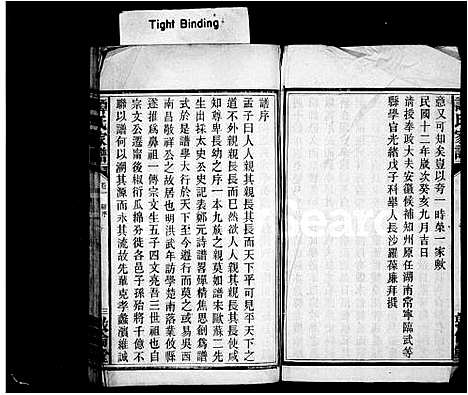 Tight Binding
意又可知矣豈以夸一時榮一家歟
民國十二年歲次癸亥九月吉日
請授奉政大夫安徽候補知州原任湖南常寧臨武等
縣學官光緒戊子科舉人長沙羅葆廉拜撰
譜序
孟子曰人人親其親長其長而天下平可見平天下之
道不外親親長長而已然欲人人親其親長其長使咸
知尊卑長幼之序一本九族之親莫如譜宋歐蘇二先
生出採太史公史記表鄭元詩譜畧殫精焦思創為譜
式於是譜學大行於天下至今遵行而莫之或易吳西
南昌敬祥公之故居也明洪武年訪學楚南落業攸縣
遂推為鼻祖一傳宗文生五子四文亮吾三世祖也自
宗文公遷甯後椒衍瓜綿分徙各邑子孫殆將千億不
聯以譜何以溯其源而永其流故先輩克孝蠡濱維誠
氏家譜
卷一